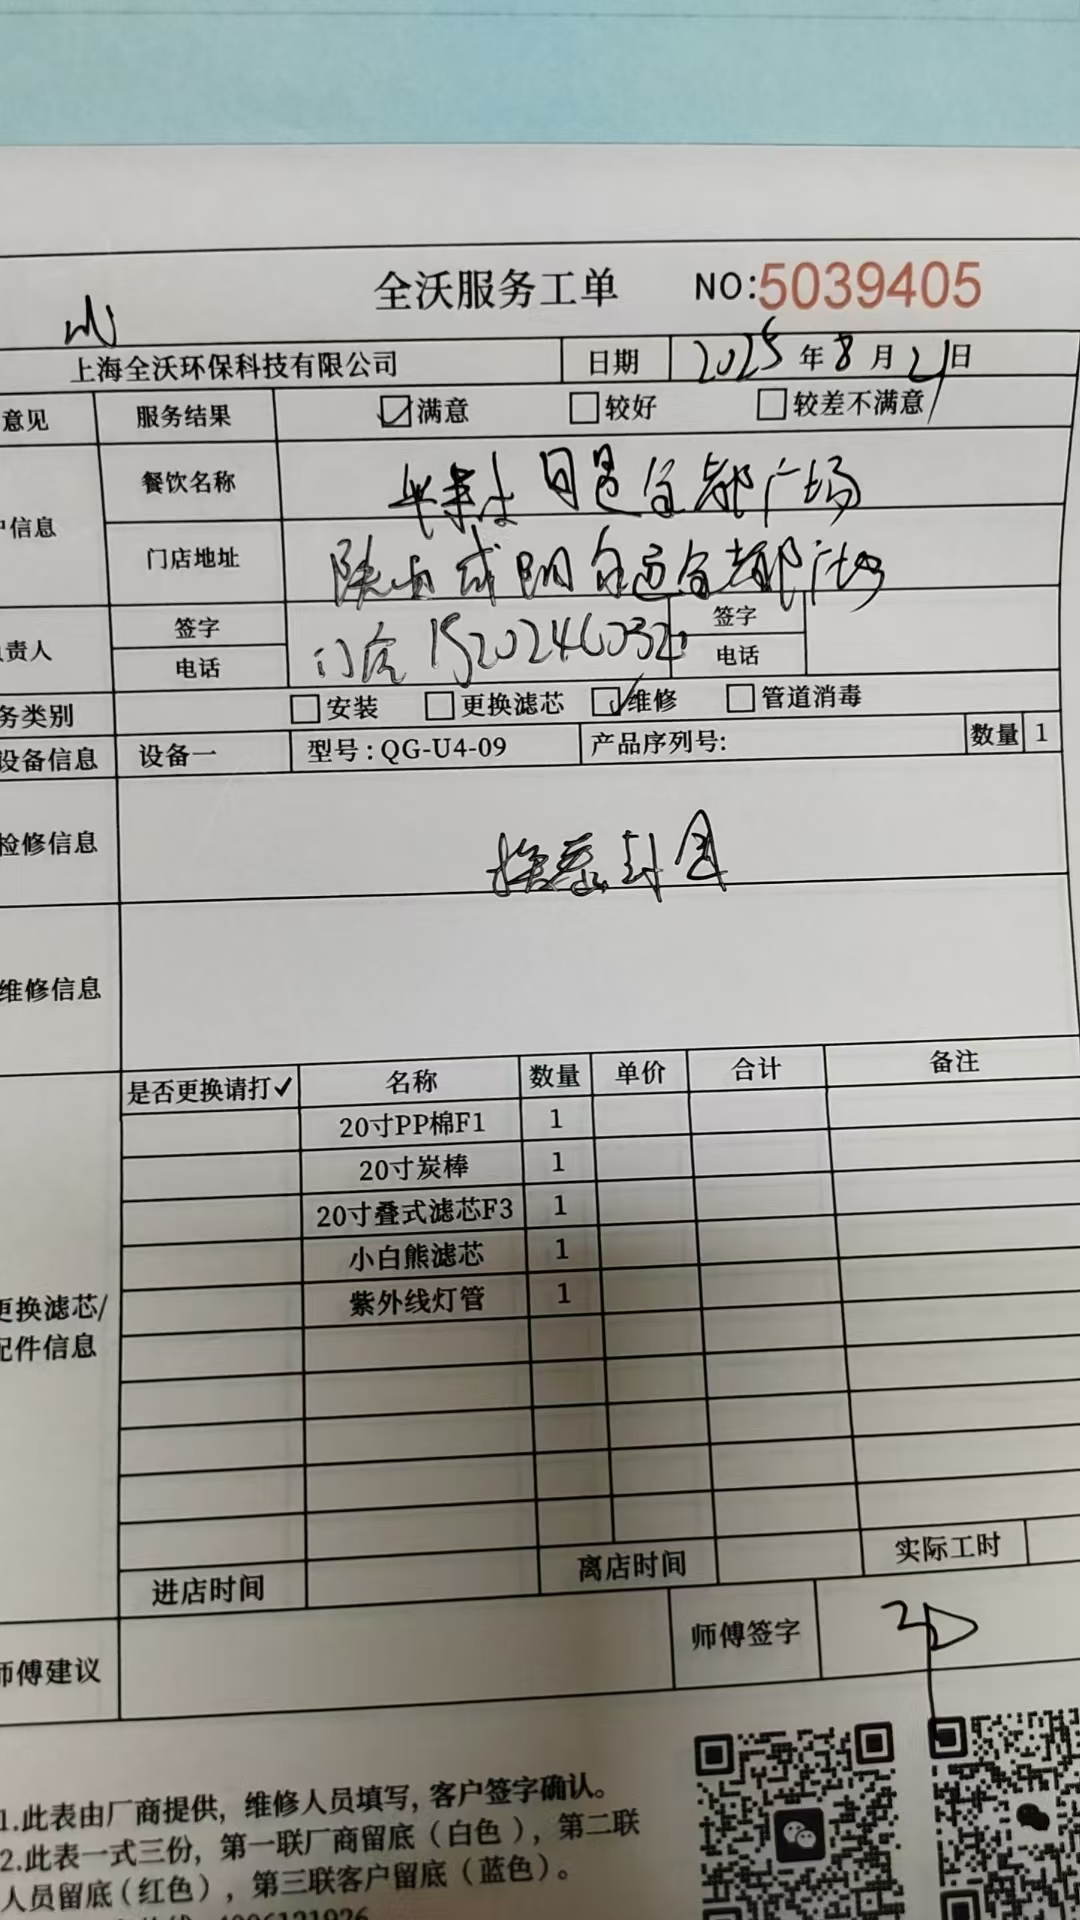 全沃服务工单 NO:5039405
上海全沃环保科技有限公司 日期 2025年8月21日
意见 服务结果 满意 较好 较差不满意
户信息 餐饮名称 广场
门店地址 广场
负责人 签字 签字
电话 门店 电话
务类别 安装 更换滤芯 维修 管道消毒
设备信息 设备一 型号:QG-U4-09 产品序列号: 数量 1
检修信息 封
维修信息
是否更换请打✓ 名称 数量 单价 合计 备注
20寸PP棉F1 1
20寸炭棒 1
20寸叠式滤芯F3 1
小白熊滤芯 1
紫外线灯管 1
更换滤芯/
配件信息
进店时间 离店时间 实际工时
师傅建议 师傅签字
1.此表由厂商提供, 维修人员填写, 客户签字确认。
2.此表一式三份, 第一联厂商留底(白色), 第二联
人员留底(红色), 第三联客户留底(蓝色)。